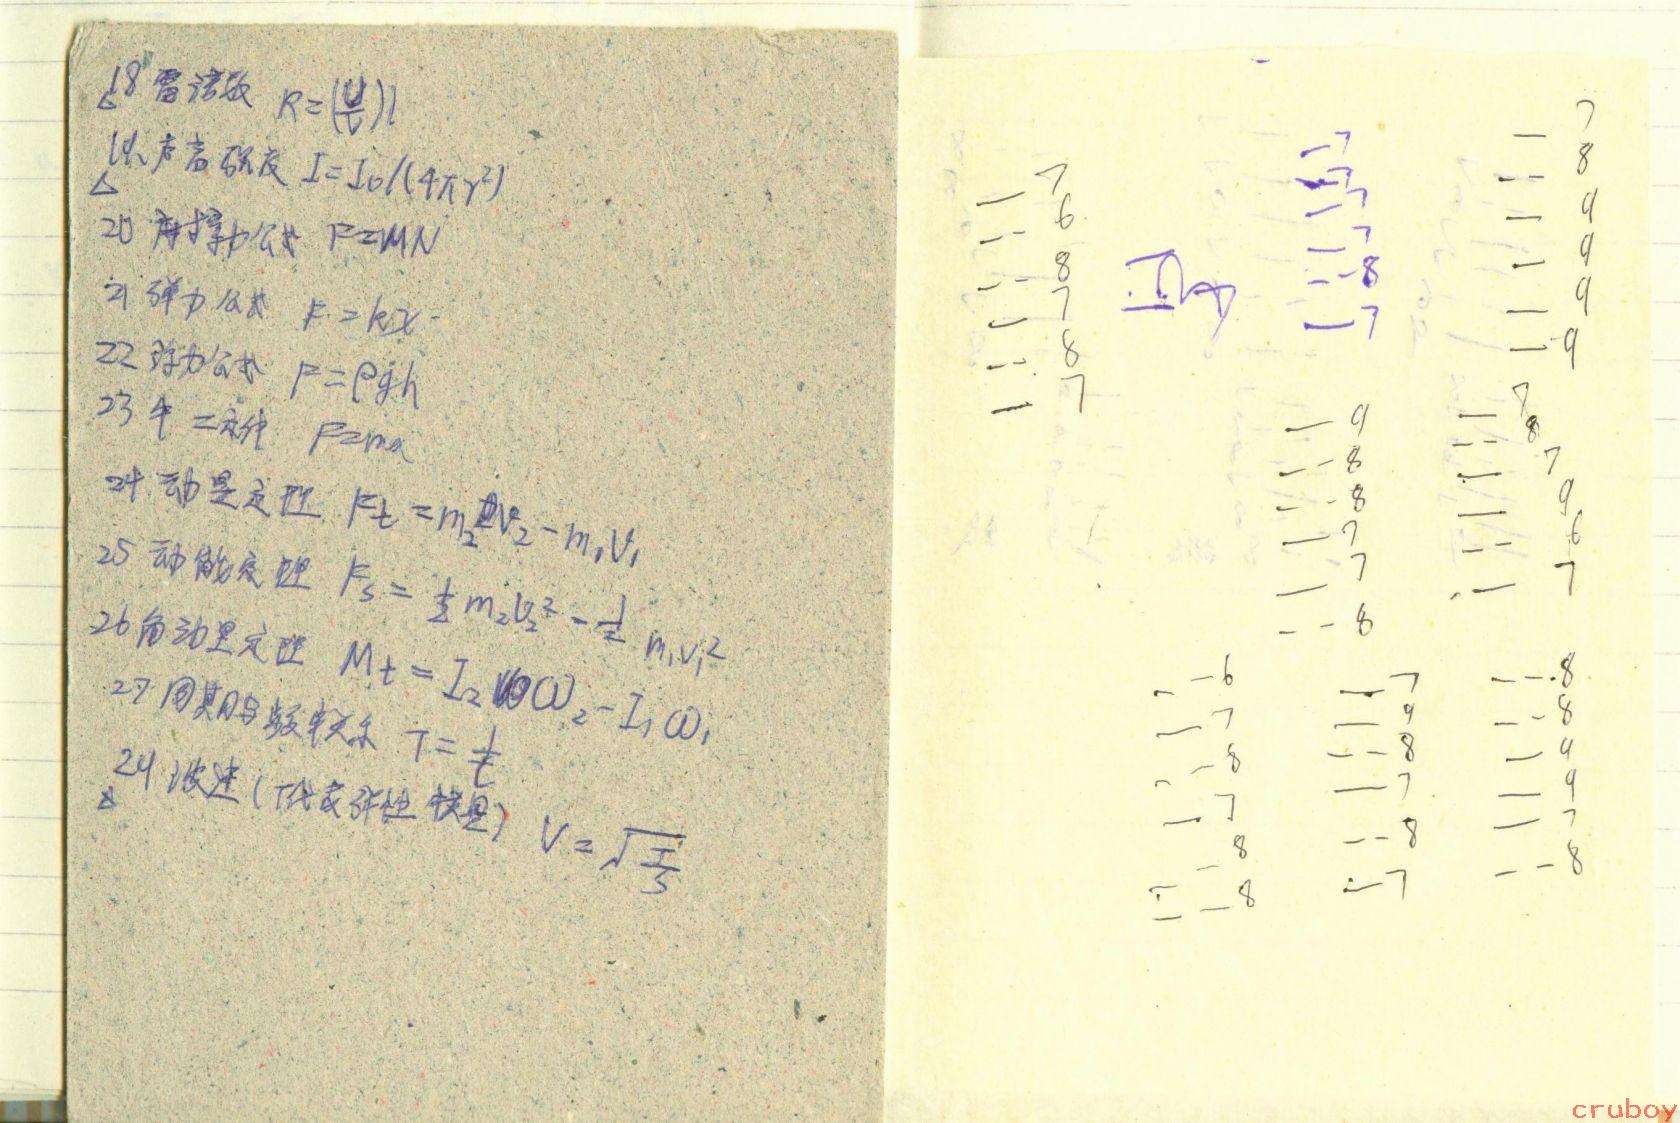 18 雷诺数 R=(U/V)l
19. 声音强度 I=I0/(4πr²)
20 摩擦力公式 F=MN
21 弹力公式 F=kx
22 浮力公式 F=ρgh
23 牛二定律 F=ma
24 动量定理 Ft=m₂v₂-m₁v₁
25 动能定理 Fs=½m₂v₂²-½m₁v₁²
26 角动量定理 Mt=I₂ω₂-I₁ω₁
27 周期与频率关系 T=1/f
波速(T代表弹性模量) V=√
7
6
8
7
8
7
7
7
7
7
8
7
7
8
9
9
9
9
9
8
8
7
7
8
7
8
7
9
6
7
6
7
8
7
8
8
7
9
8
7
8
7
8
8
9
9
7
8
cruboy